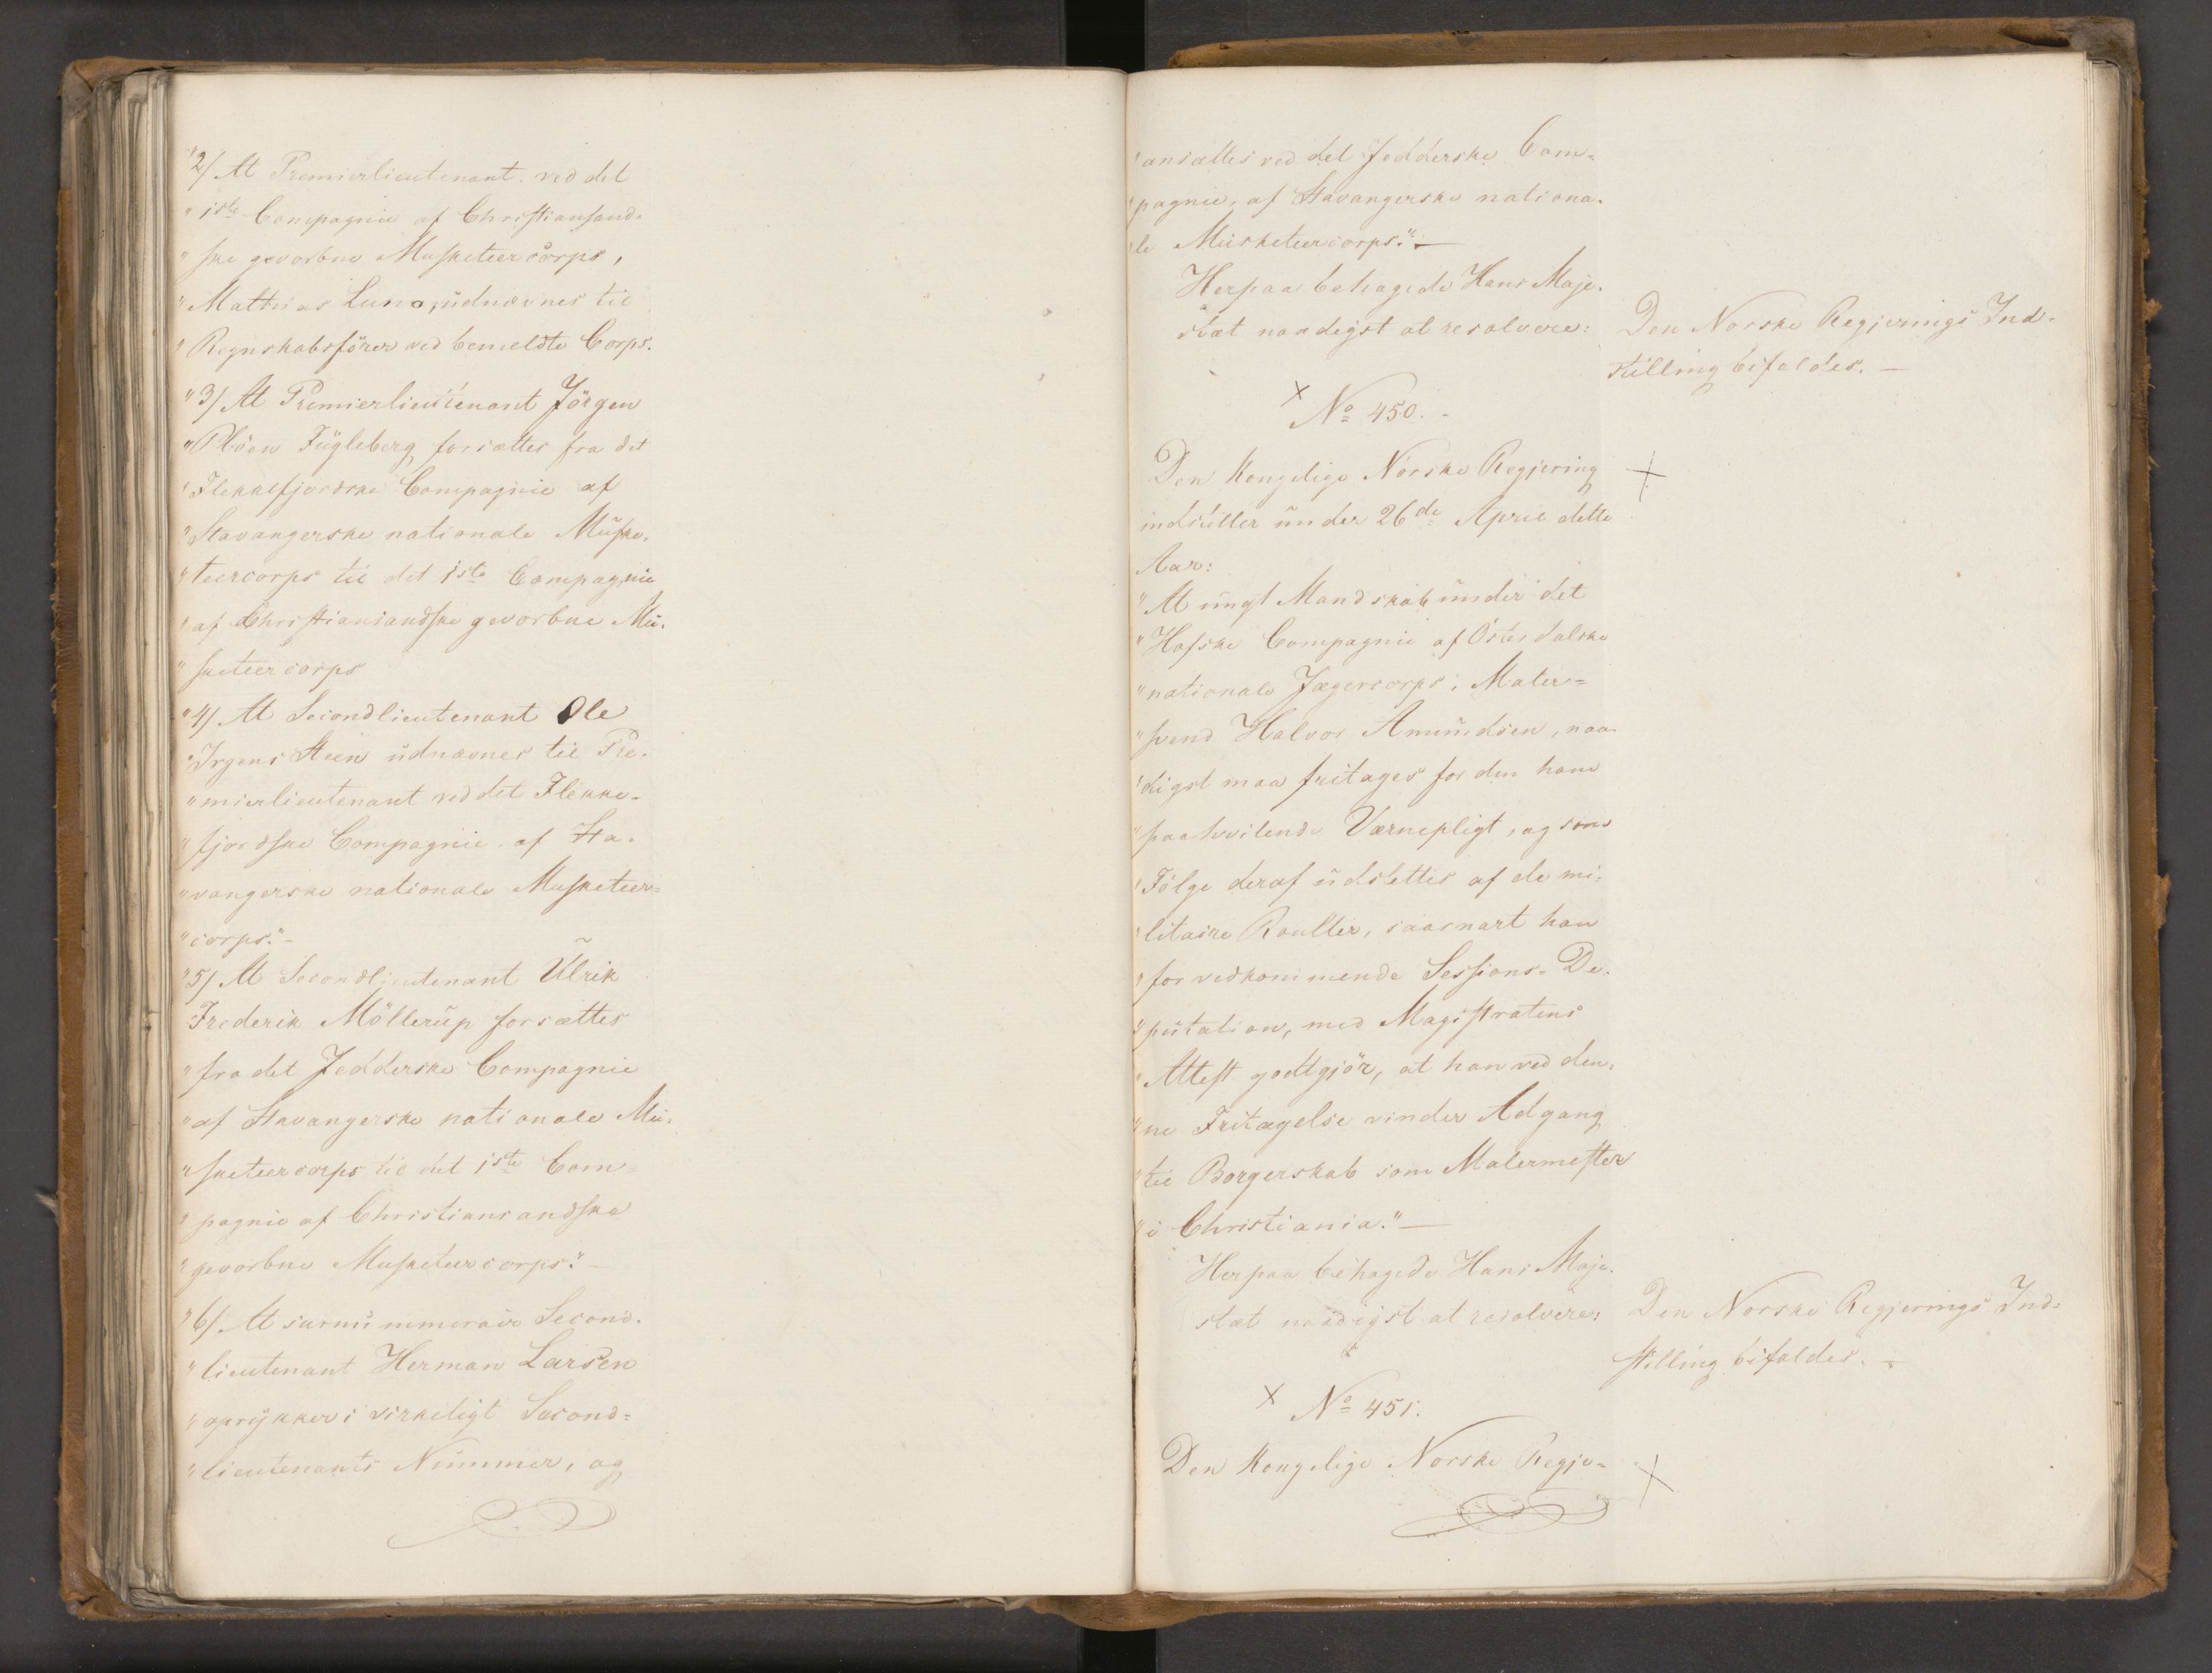 "2/ At Premierlieutenant ved det
" 1ste Compagnie af Christiansand-
" ske gevorbne Musketeercorps,
" Mathias Luno, udnævnes til
" Regnskabsfører ved bemeldte Corps.
"3/ At Premierlieutenant Jörgen
" Plöen Fugleberg forsættes fra det
" Flekkefjordske Compagnie af
" Stavangerske nationale Muske-
" teercorps til det 1ste Compagnie
" af Christiansandske gevorbne Mu-
" sketeercorps
"4/ At Secondlieutenant Ole
" Irgens Steen udnævnes til Pre-
" mierlieutenant ved det Flekke-
" fjordske Compagnie af Sta-
" vangerske nationale Musketeer-
" corps."-
"5/ At Secondlieutenant Ulrik
Frederik Möllerup forsættes
" fra det Jedderske Compagnie
" af Stavangerske nationale Mu-
" sketeercorps til det 1ste Com-
" pagnie af Christiansandske
" gevorbne Musketeercorps."-
"6/ At surnummerair Second-
" lieutenant Herman Larsen
" oprykker i virkeligt Second-
" lieutenants Nummer, og
" ansættes ved det Jedderske Com-
" pagnie, af Stavangerske nationa-
" le Musketeercorps."-
Herpaa behagede Hans Maje-
stæt naadigst at resolvere:
Den Norske Regjerings Ind-
stilling bifaldes. -
× No 450. -
Den Kongelige Norske Regjering ×
indstiller under 26de April dette
Aar:
" At ungt Mandskab under det
" Hofske Compagnie af Österdalske
" nationale Jægercorps, Maler-
" svend Halvor Amundsen, naa-
" digst maa fritages for den ham
" paahvilende Værnepligt, og som
" Fölge deraf udslettes af de mi-
" litaire Rouller, saasnart han
" for vedkommende Sessions-De-
" putation, med Magistratens
" Attest godtgjör, at han ved den-
" ne Fritagelse vinder Adgang
" til Borgerskab som Malermester
" i Christiania."-
Herpaa behagede Hans Maje-
stæt naadigst at resolvere:
Den Norske Regjerings Ind-
stilling bifaldes. -
× No 451.
Den Kongelige Norske Regje- ×